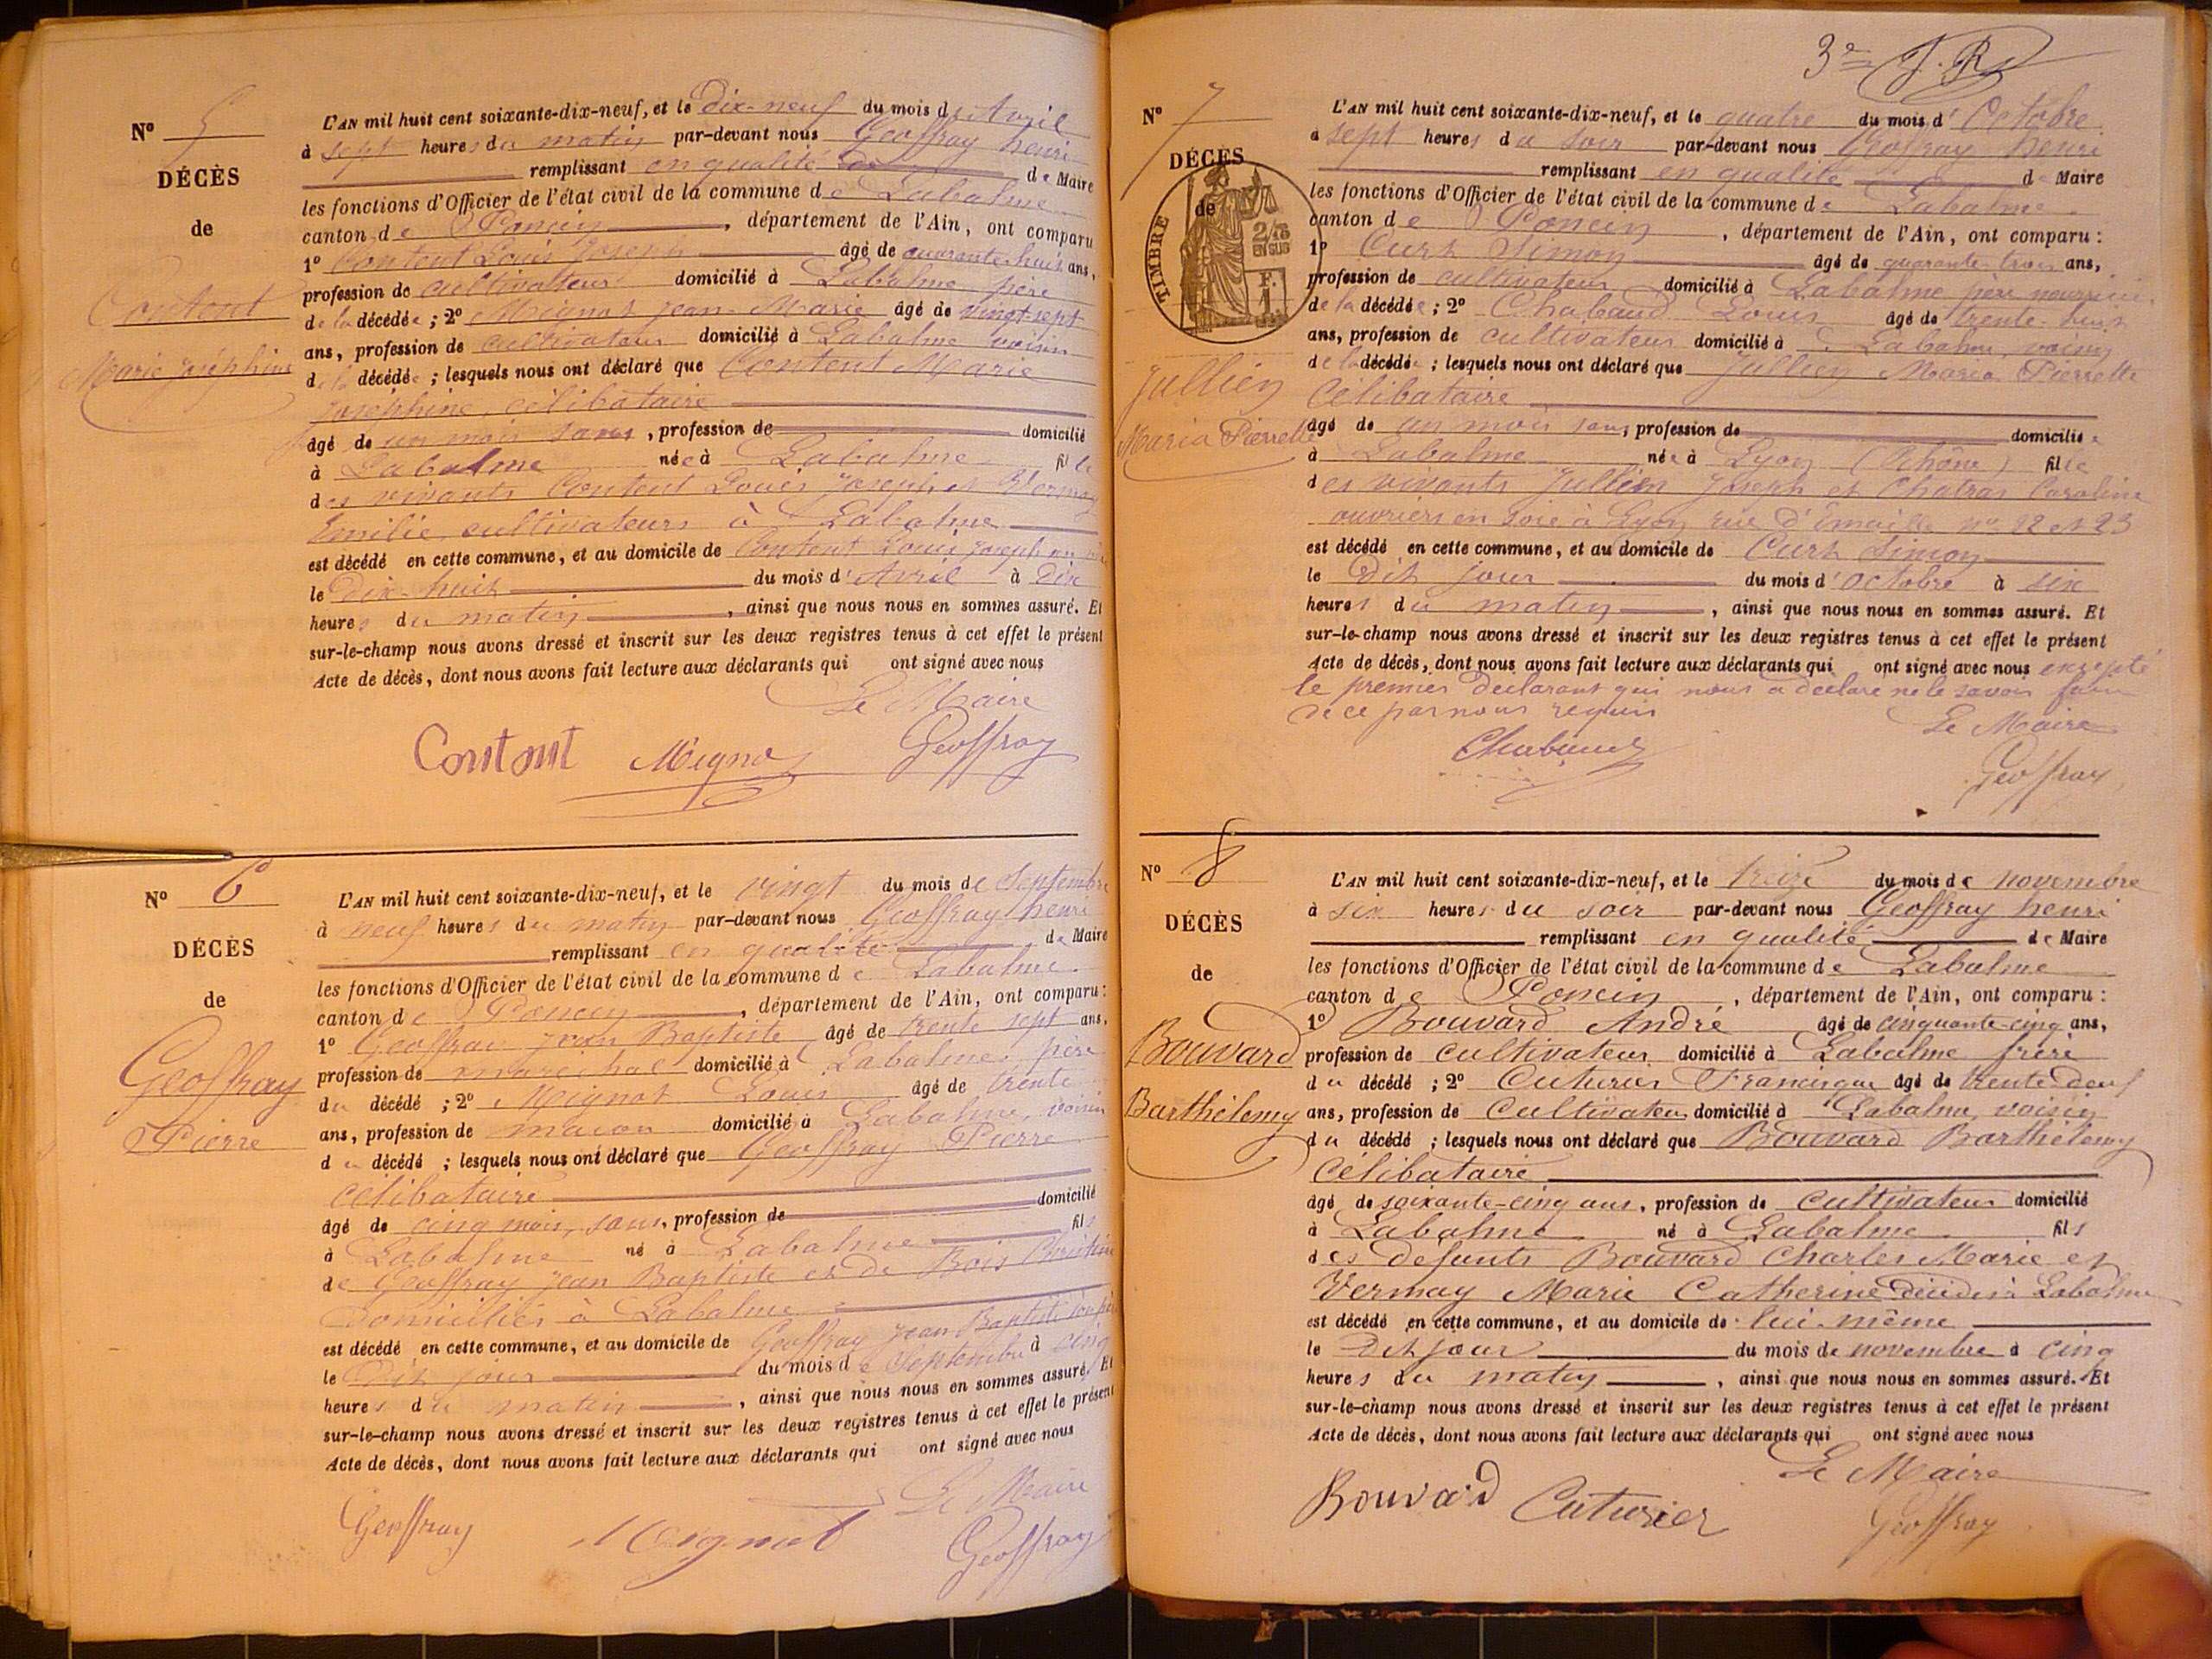 Nº 5
DÉCÈS
de
Content
Marie Joséphine
L'AN mil huit cent soixante-dix-neuf, et le dix-neuf du mois d'Avril
à sept heures du matin par-devant nous Geoffray henri
remplissant en qualité de Maire
les fonctions d'Officier de l'état civil de la commune de Labalme
canton de Poncin, département de l'Ain, ont comparu
1º Content Louis Joseph âgé de quarante-huit ans,
profession de cultivateur domicilié à Labalme père
de la décédée ; 2º Mignot jean-Marie âgé de vingt sept
ans, profession de cultivateur domicilié à Labalme voisin
de la décédée ; lesquels nous ont déclaré que Content Marie
Joséphine, célibataire
âgé de un mois sans, profession de domicilié
à Labalme née à Labalme fille
des vivants Content Louis Joseph et Vermay
Emilie, cultivateurs à Labalme
est décédé en cette commune, et au domicile de Content Louis Joseph
le Dix-huit du mois d'Avril à Dix
heures du matin, ainsi que nous nous en sommes assuré. Et
sur-le-champ nous avons dressé et inscrit sur les deux registres tenus à cet effet le présent
Acte de décès, dont nous avons fait lecture aux déclarants qui ont signé avec nous
Le Maire
Content Mignot Geoffray
Nº 6
DÉCÈS
de
Geoffray
Pierre
L'AN mil huit cent soixante-dix-neuf, et le vingt du mois de Septembre
à neuf heures du matin par-devant nous Geoffray henri
remplissant en qualité de Maire
les fonctions d'Officier de l'état civil de la commune de Labalme
canton de Poncin, département de l'Ain, ont comparu :
1º Geoffray jean Baptiste âgé de trente sept ans,
profession de maréchal domicilié à Labalme, père
du décédé ; 2º Mignot Louis âgé de trente
ans, profession de maçon domicilié à Labalme, voisin
du décédé ; lesquels nous ont déclaré que Geoffray Pierre
célibataire
âgé de cinq mois, sans, profession de domicilié
à Labalme né à Labalme fils
de Geoffray jean Baptiste et de Bois
domiciliés à Labalme
est décédé en cette commune, et au domicile de Geoffray jean Baptiste
le Dit jour du mois de Septembre à cinq
heures du matin, ainsi que nous nous en sommes assuré. Et
sur-le-champ nous avons dressé et inscrit sur les deux registres tenus à cet effet le présent
Acte de décès, dont nous avons fait lecture aux déclarants qui ont signé avec nous
Le Maire
Geoffray Mignot Geoffray
3e J. R.
Nº 7
DÉCÈS
de
TIMBRE
2/10
EN SUS
Jullien
Maria Pierrette
L'AN mil huit cent soixante-dix-neuf, et le quatre du mois d'Octobre
à sept heures du soir par-devant nous Geofray henri
remplissant en qualité de Maire
les fonctions d'Officier de l'état civil de la commune de Labalme
canton de Poncin, département de l'Ain, ont comparu :
1º Curt Simon âgé de quarante-trois ans,
profession de cultivateur domicilié à Labalme père nourricier
de la décédée ; 2º Chabaud Louis âgé de trente-huit
ans, profession de cultivateur domicilié à Labalme, voisin
de la décédée ; lesquels nous ont déclaré que Jullien Maria Pierrette
Célibataire
âgé de un mois sans, profession de domiciliée
à Labalme née à Lyon (Rhône) fille
des vivants Jullien Joseph et Chatras Caroline
ouvriers en soie à Lyon rue d'Emaille nos 22 et 23
est décédé en cette commune, et au domicile de Curt Simon
le Dit jour du mois d'octobre à six
heures du matin, ainsi que nous nous en sommes assuré. Et
sur-le-champ nous avons dressé et inscrit sur les deux registres tenus à cet effet le présent
Acte de décès, dont nous avons fait lecture aux déclarants qui ont signé avec nous excepté
le premier déclarant qui nous a déclaré ne le savoir faire
de ce par nous requis
Le Maire
Chabaud Geoffray
Nº 8
DÉCÈS
de
Bouvard
Barthélemy
L'AN mil huit cent soixante-dix-neuf, et le treize du mois de novembre
à six heures du soir par-devant nous Geoffray henri
remplissant en qualité de Maire
les fonctions d'Officier de l'état civil de la commune de Labalme
canton de Poncin, département de l'Ain, ont comparu :
1º Bouvard André âgé de cinquante-cinq ans,
profession de cultivateur domicilié à Labalme frère
du décédé ; 2º Cuturier Francisque âgé de trente deux
ans, profession de Cultivateur domicilié à Labalme, voisin
du décédé ; lesquels nous ont déclaré que Bouvard Barthélemy
Célibataire
âgé de soixante-cinq ans, profession de cultivateur domicilié
à Labalme né à Labalme fils
des défunts Bouvard Charles Marie et
Vermay Marie Catherine décédés à Labalme
est décédé en cette commune, et au domicile de lui-même
le Dit jour du mois de novembre à cinq
heures du matin, ainsi que nous nous en sommes assuré. Et
sur-le-champ nous avons dressé et inscrit sur les deux registres tenus à cet effet le présent
Acte de décès, dont nous avons fait lecture aux déclarants qui ont signé avec nous
Le Maire
Bouvard Cuturier Geoffray